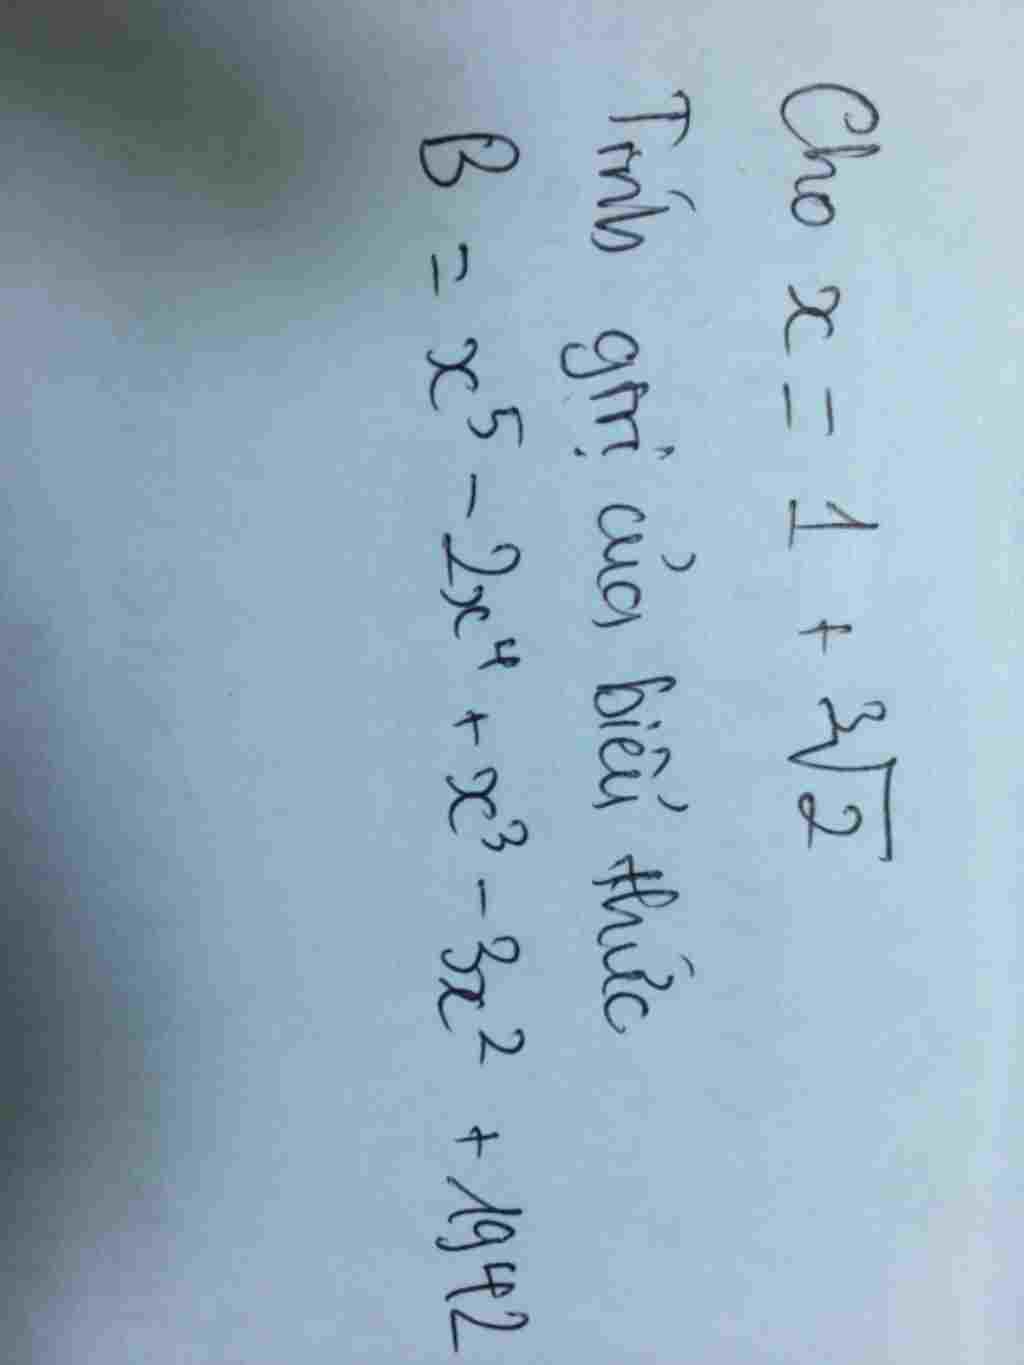 Cho x = 1 + ∛2
Tính gtrị của biểu thức
B = x⁵ - 2x⁴ + x³ - 3x² + 1942